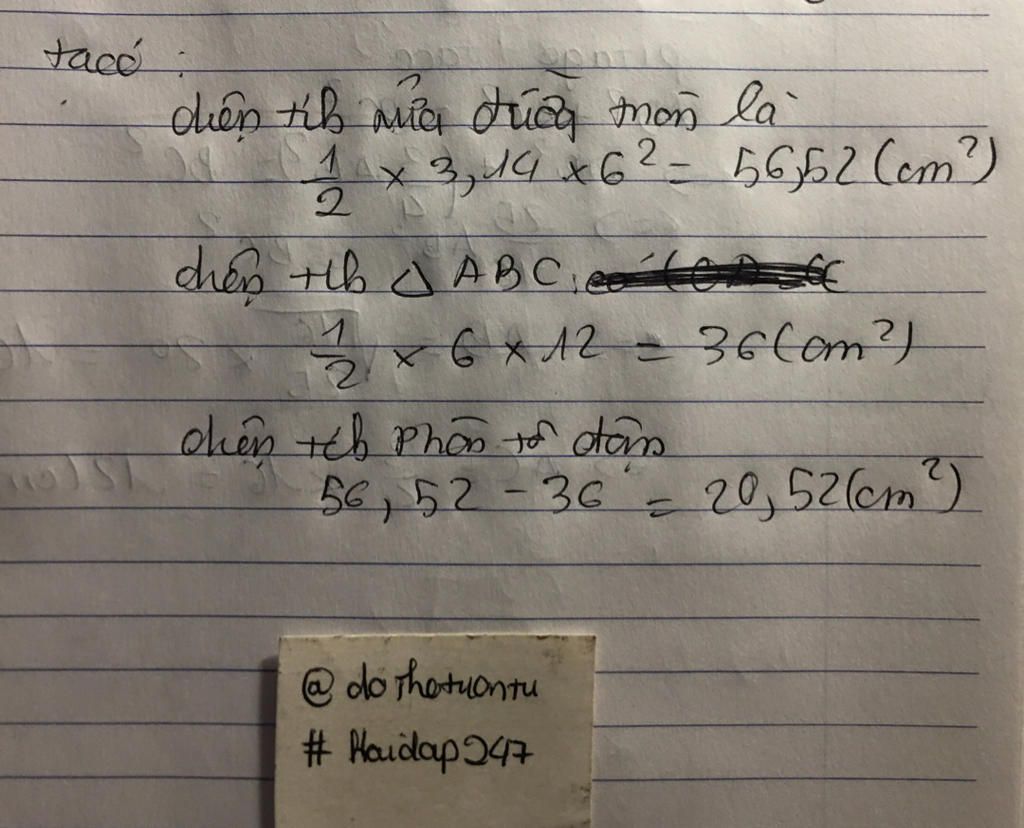 ta có :
diện tích nửa đường tròn là
1/2 × 3,14 × 6² = 56,52 (cm²)
diện tích △ ABC :
1/2 × 6 × 12 = 36 (cm²)
diện tích phần tô đậm
56,52 - 36 = 20,52 (cm²)
@ do Thotuontu
# Hoidap247